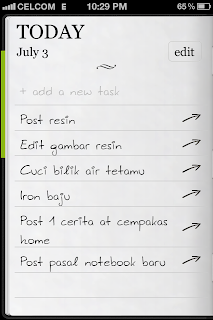 CELCOM E 10:29 PM 65%
TODAY
July 3
edit
+ add a new task
Post resin
Edit gambar resin
Cuci bilik air tetamu
Iron baju
Post 1 cerita at cempakas
home
Post pasal notebook baru